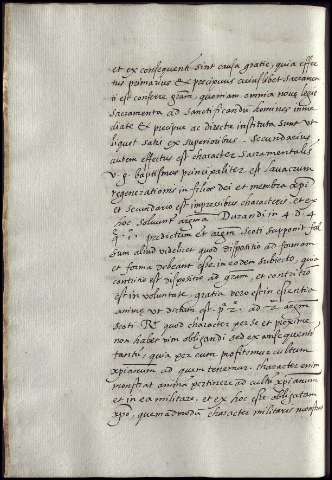 et ex consequenti sint causa gratie, quia effec
tus primarius & precipuus cuiuslibet sacramen
ti est conferre gram, quoniam omnia noue legis
sacramenta ad sanctificandu homines imme
diate & precipue ac directe instituta sunt ut
liquet satis ex superioribus. Secundarius
autem effectus est character sacramentalis
v. g. baptismus principaliter est lauacrum
regenerationis in filios dei et membra xpi
et secundario est impressibus characteris, et ex
hoc soluunt argma Durandi in 4. d. 4
q. 1. predictum et argm. scoti supponit fal
sum aliud videlicet quod dispositio ad formam
et forma debeant esse in eodem subiecto, quia
contritio est dispositio ad gram, et contritio
est in voluntate, gratia vero est in essentia
anime ut dictum est ad 2. argm
scoti R. quod character per se et proxime
non habet vim obligandi sed ex consequenti
tantu, quia per eum profitemur cultum
xpianum ad quem tenemur. character enim
monstrat anima pertinere ad cultu xpianum
et in ea militare, et ex hoc est obligatam
xpo, quemadmodu character militaris monstrat